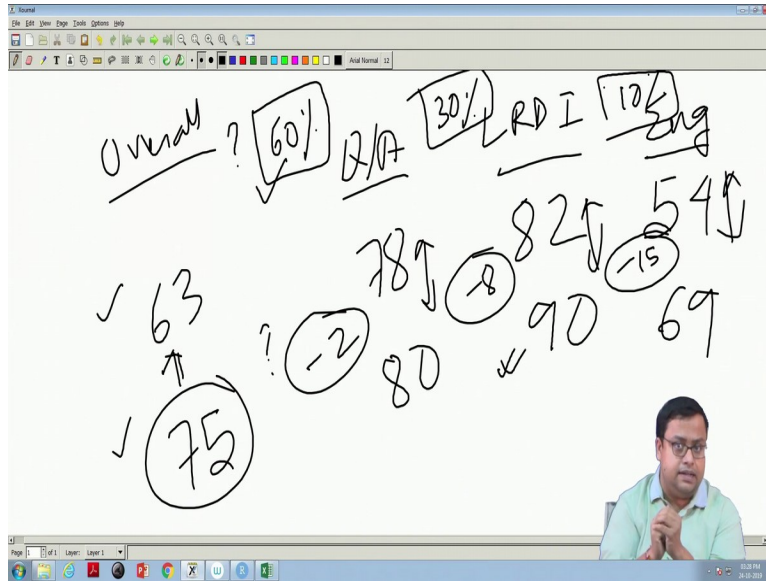 Xournal
File Edit View Page Tools Options Help
Arial Normal 12
Overall ? 60% Q/A 30% LRDI 10% Eng
78 82 54
-8 -15
63
? -2 80 90 69
75
Page 1 of 1 Layer: Layer 1
03:28 PM
24-10-2019